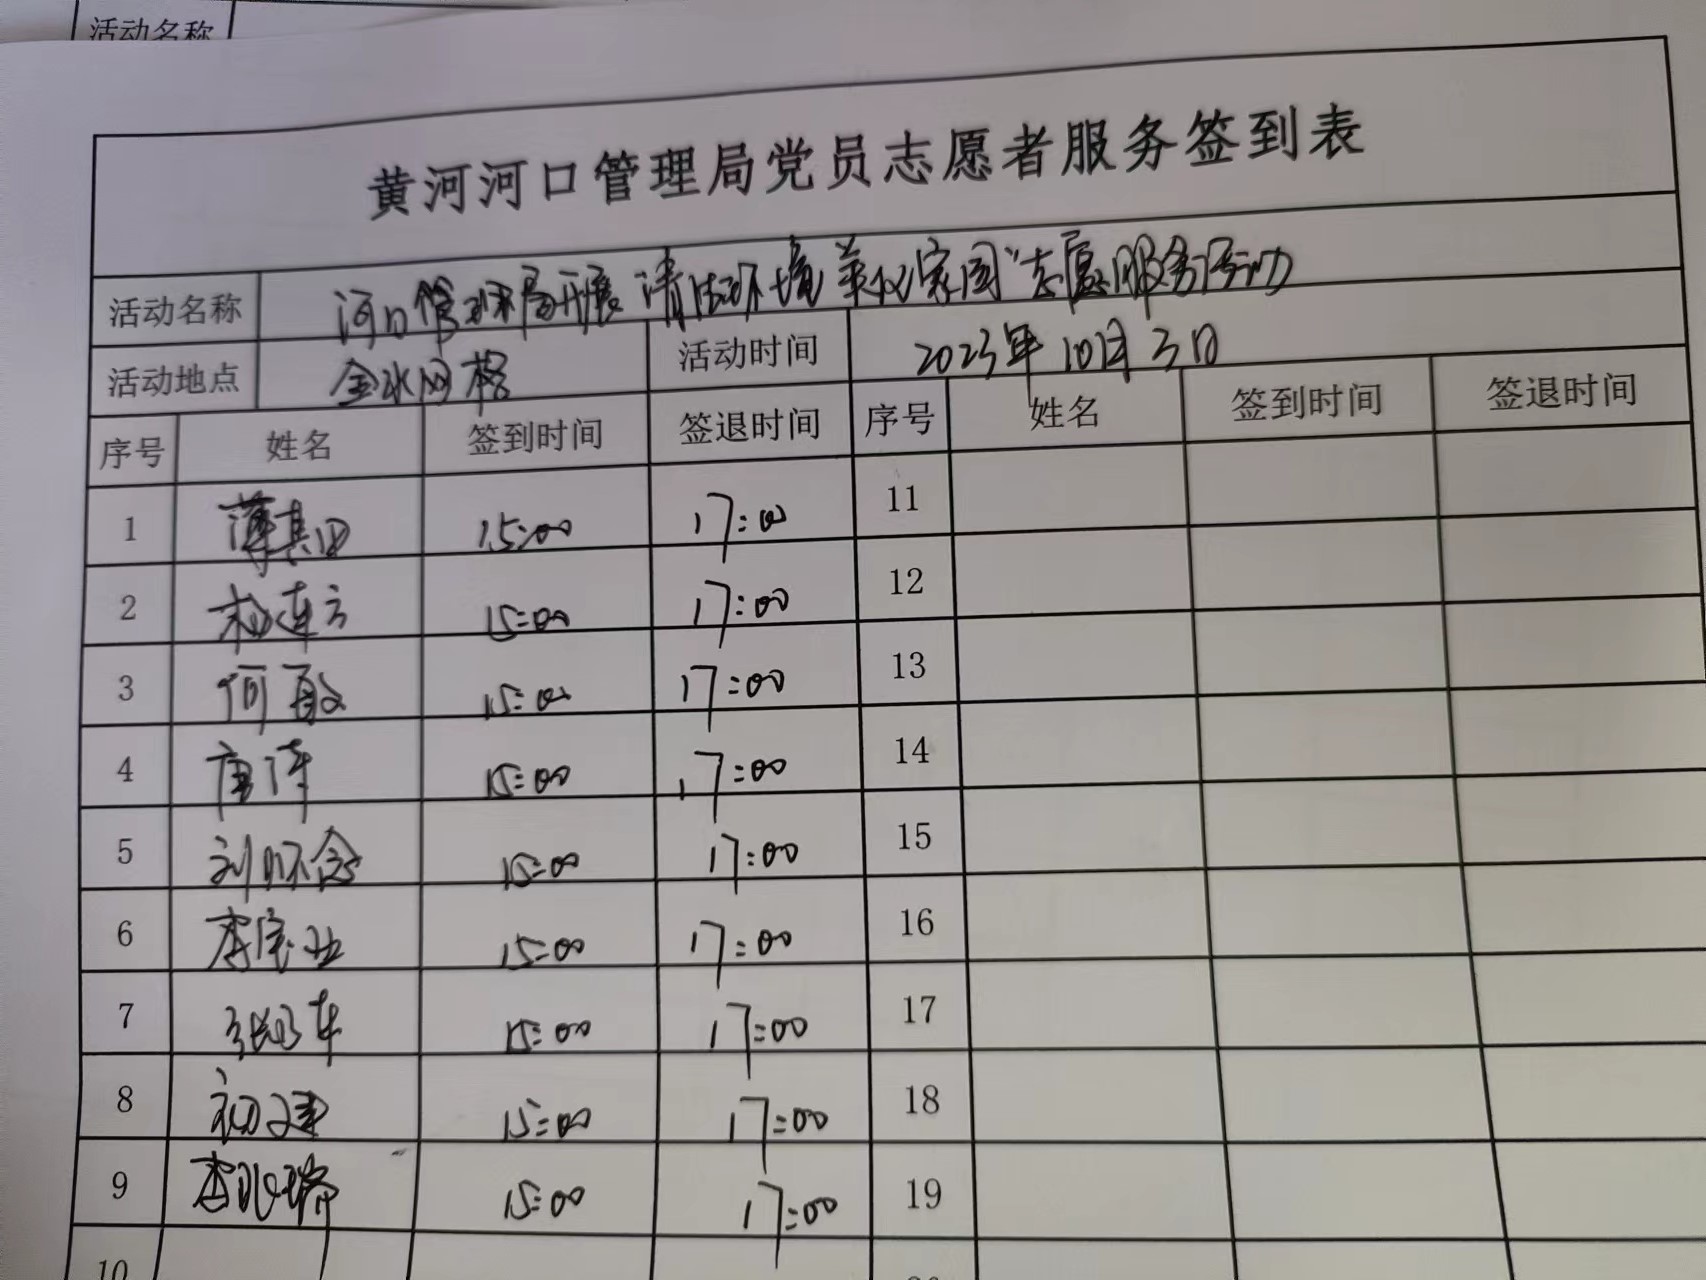 活动名称
黄河河口管理局党员志愿者服务签到表
活动名称 河口管理局开展 清洁环境 美化家园"志愿服务活动
活动地点 金水网格 活动时间 2023年10月3日
序号 姓名 签到时间 签退时间 序号 姓名 签到时间 签退时间
1 薄其 15:00 17:00 11
2 连方 15:00 17:00 12
3 何敏 15:00 17:00 13
4 唐涛 15:00 17:00 14
5 刘怀念 15:00 17:00 15
6 李宝 15:00 17:00 16
7 张 15:00 17:00 17
8 初建 15:00 17:00 18
9 李 15:00 17:00 19
10